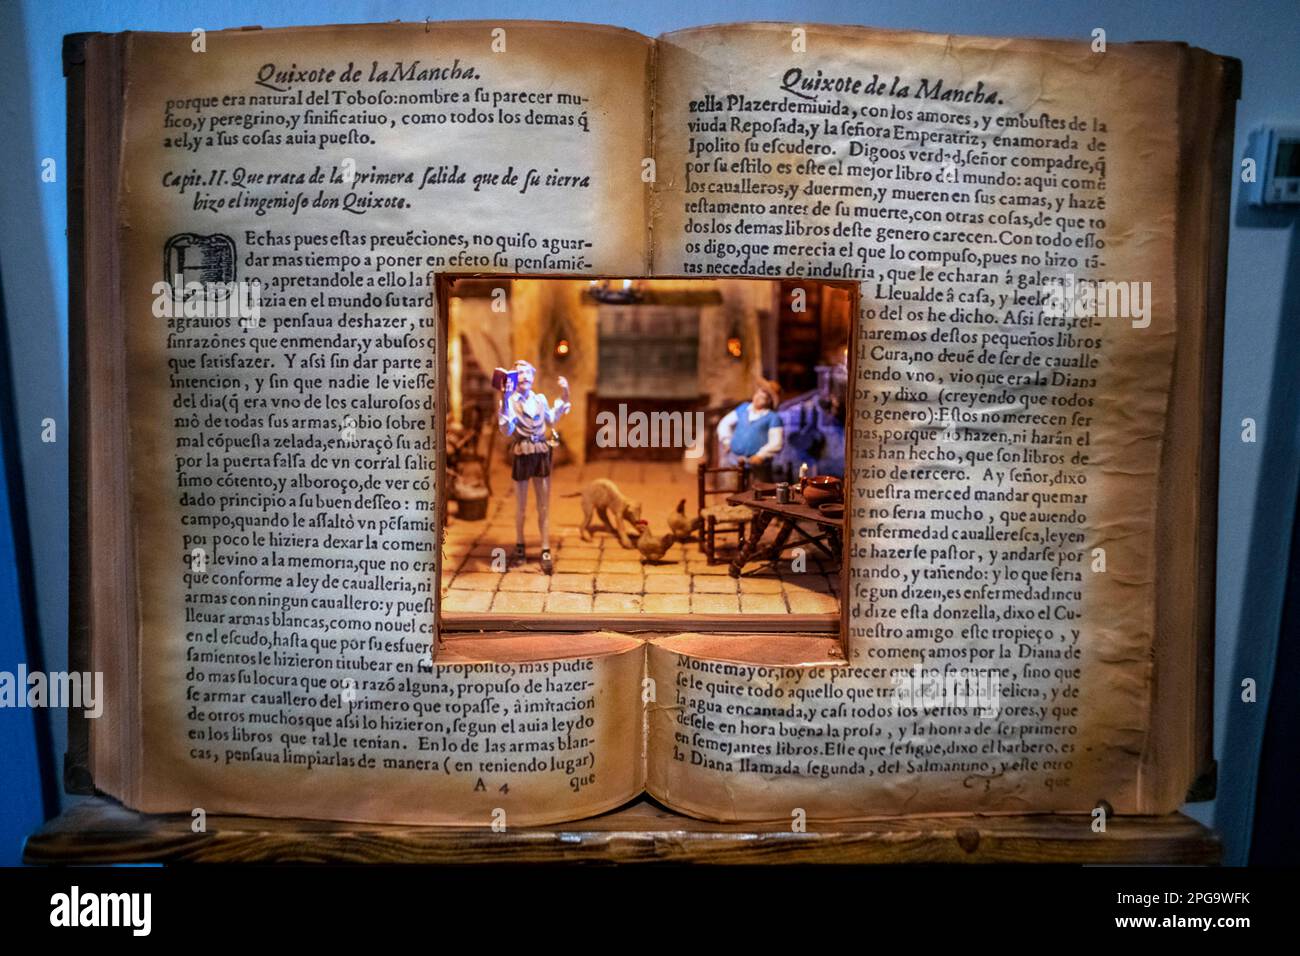 Quixote de la Mancha.
porque era natural del Toboſo: nombre a ſu parecer mu-
ſico, y peregrino, y ſinificatiuo, como todos los demas q̃
a el, y a ſus coſas auia pueſto.
Capit. II. Que trata de la primera ſalida que de ſu tierra
hizo el ingenioſo don Quixote.
HEchas pues eſtas preuẽciones, no quiſo aguar-
dar mas tiempo a poner en efeto ſu penſamiẽ-
to, apretandole a ello la f
hazia en el mundo ſu tard
agrauios que penſaua deshazer, tu
ſinrazones que enmendar, y abuſos q
que ſatisfazer. Y aſsi ſin dar parte a
intencion, y ſin que nadie le vieſſe
del dia (q̃ era vno de los caluroſos de
mò de todas ſus armas, ſubio ſobre
mal cõpueſta zelada, embraçò ſu ada
por la puerta falſa de vn corral ſalio
ſimo cõtento, y alboroço, de ver cõ
dado principio a ſu buen deſſeo: ma
campo, quando le aſſaltò vn pẽſamie
poi poco le hiziera dexar la comen
que le vino a la memoria, que no era
que conforme a ley de caualleria, ni
armas con ningun cauallero: y pueſt
lleuar armas blancas, como nouel ca
en el eſcudo, haſta que por ſu esfuerç
ſamientos le hizieron titubear en ſu propoſito, mas pudiẽ
do mas ſu locura que otra razõ alguna, propuſo de hazer-
ſe armar cauallero del primero que topaſſe, â imitacion
de otros muchos que aſsi lo hizieron, ſegun el auia leydo
en los libros que tal le tenian. En lo de las armas blan-
cas, penſaua limpiarlas de manera (en teniendo lugar)
A 4 que
Quixote de la Mancha.
zella Plazerdemiuida, con los amores, y embuſtes de la
viuda Repoſada, y la ſeñora Emperatriz, enamorada de
Ipolito ſu eſcudero. Digoos verdad, ſeñor compadre, q̃
por ſu eſtilo es eſte el mejor libro del mundo: aqui comẽ
los caualleros, y duermen, y mueren en ſus camas, y hazẽ
teſtamento antes de ſu muerte, con otras coſas, de que to
dos los demas libros deſte genero carecen. Con todo eſſo
os digo, que merecia el que lo compuſo, pues no hizo tã-
tas necedades de induſtria, que le echaran á galeras por
Lleualde â caſa, y leelde, y ve-
to del os he dicho. Aſsi ſera, reſ-
haremos deſtos pequeños libros
el Cura, no deuẽ de ſer de caualle
iendo vno, vio que era la Diana
or, y dixo (creyendo que todos
no genero): Eſtos no merecen ſer
mas, porque no hazen, ni harán el
rias han hecho, que ſon libros de
yzio de tercero. Ay ſeñor, dixo
vueſtra merced mandar quemar
ue no ſeria mucho, que auiendo
enfermedad caualleresca, leyen
de hazerſe paſtor, y andarſe por
ntando, y tañendo: y lo que ſeria
ſegun dizen, es enfermedad incu
d dize eſta donzella, dixo el Cu-
nueſtro amigo eſte tropieço, y
s començamos por la Diana de
Montemayor, ſoy de parecer que no ſe queme, ſino que
ſe le quite todo aquello que trata de la ſabia Felicia, y de
la agua encantada, y caſi todos los verſos mayores, y que
deſele en hora buena la proſa, y la honra de ſer primero
en ſemejantes libros. Eſte que ſe ſigue, dixo el barbero, es
la Diana llamada ſegunda, del Salmantino, y eſte otro
C 3 que
alamy
2PG9WFK